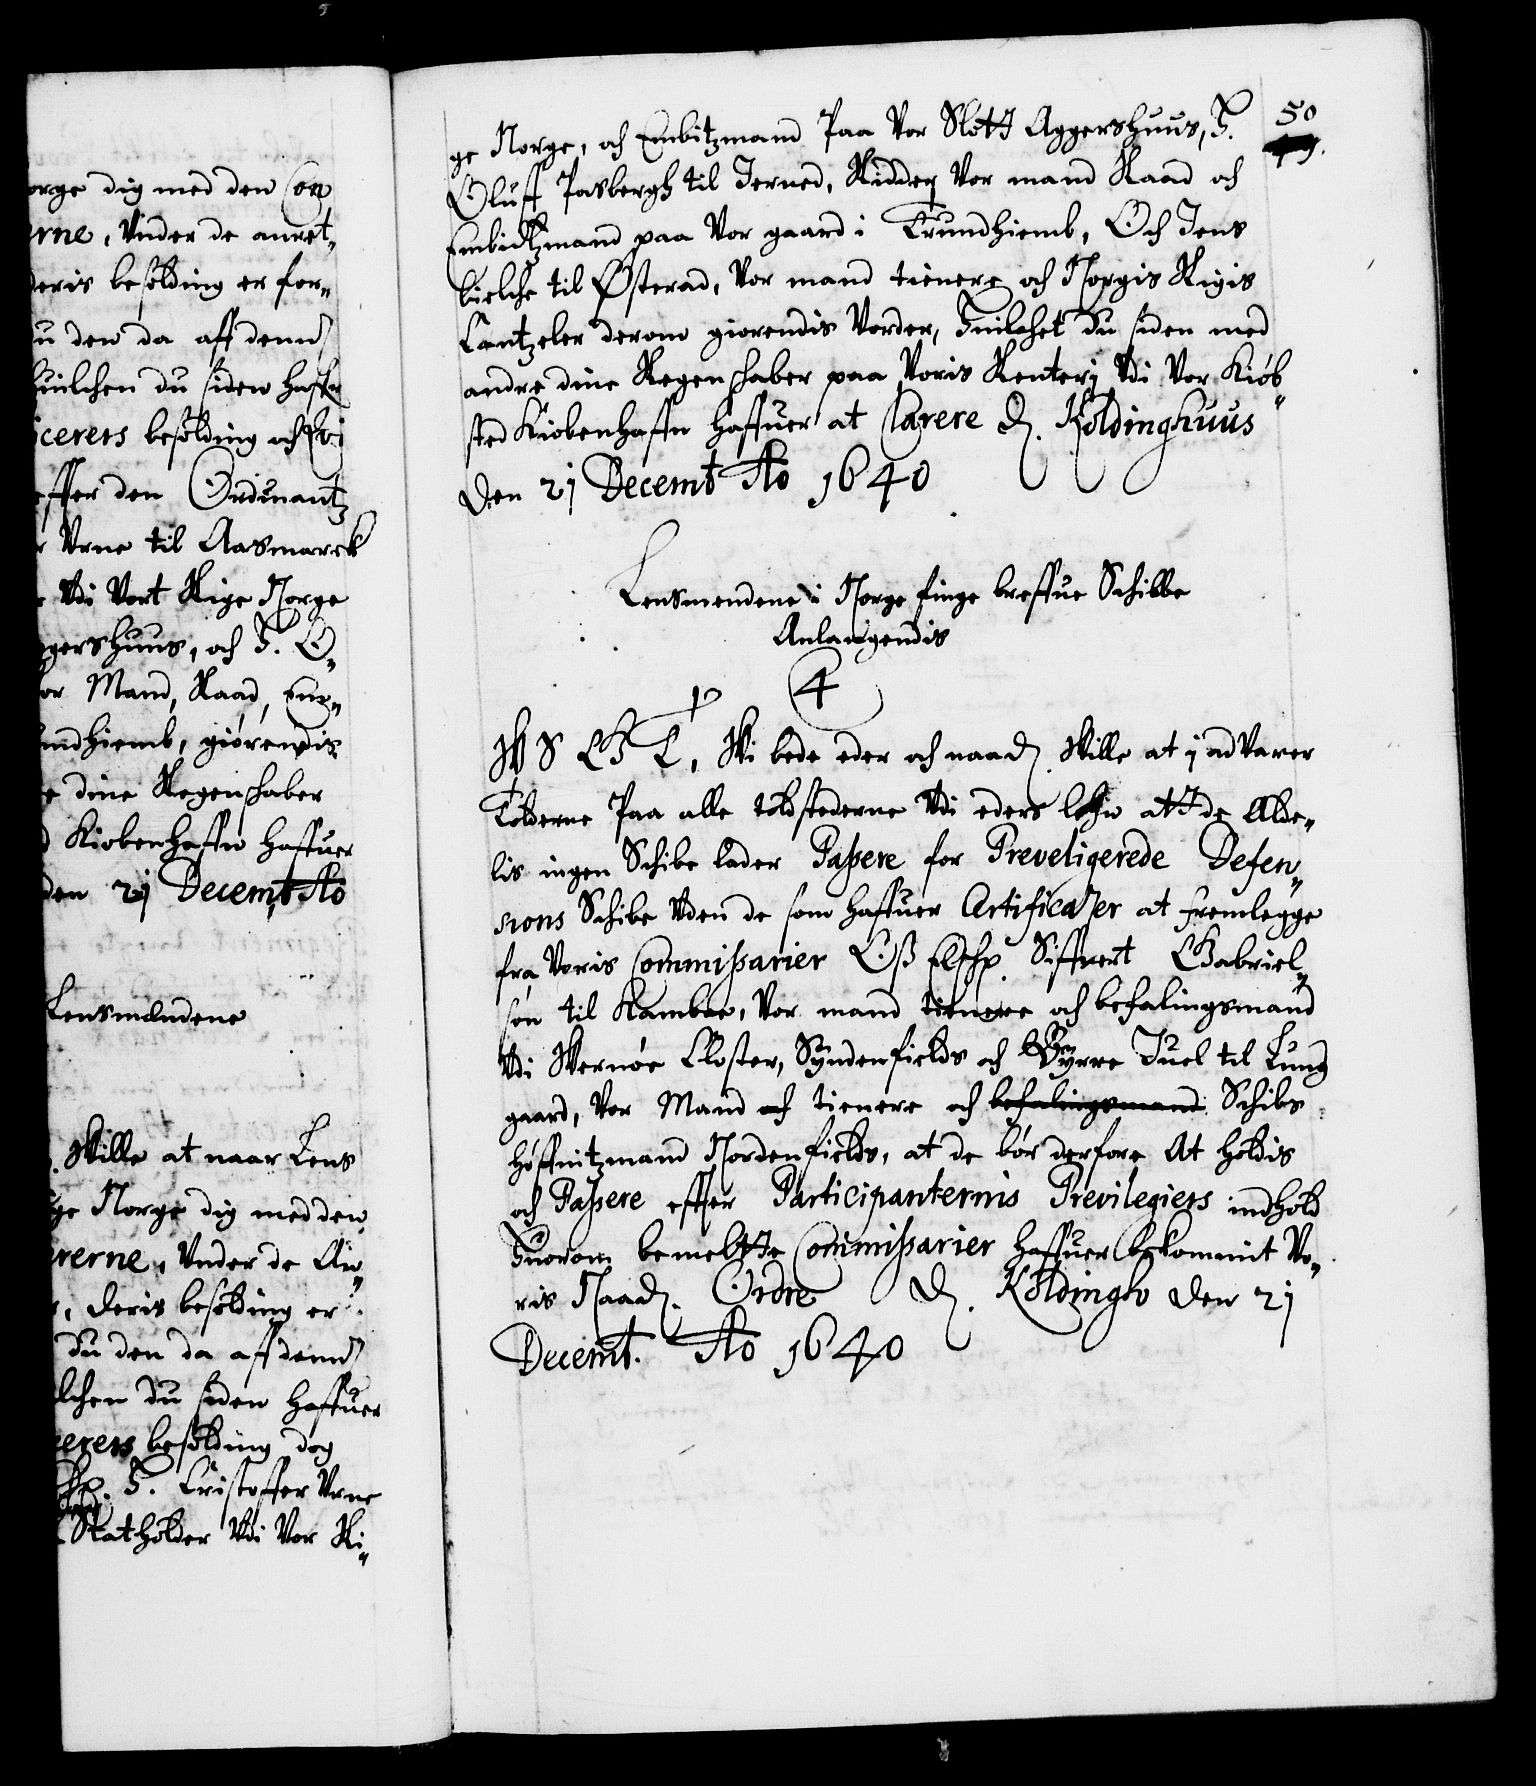 orge dig med den Con
erne, Vnder de anret„
deris besolding er for„
u den da aff dennd
huilchen du siden haffr
icerers besolding och
effter den Ordinantz
r Vrne til Aasmarck
Vdi Vort Rige Norge
ggershuus, och H. O„
or Mand, Raad, em„
undhiemb, giørendis
e dine Regenschaber
d Kiobenhaffn haffuer
den 21 Decemb Ao
Lensmendene
Wille at naar Lens
ge Norge dig med den
rerne, Vnder de An„
, deris besolding er
du den da aff dennd
lchen du siden haffuer
cerers besolding dog
H. Cristoffer Vrne
Statholder Vdi Vor Ri„
50
49.
ge Norge, och Embitzmand Paa Vor Slott Aggershuus, H.
Oluff Parsbergh til Jerned, Ridder Vor mand Raad och
Embidtzmand paa Vor gaard i Trundhiemb, Och Jens
bielche til Østerad, Vor mand tienere och Norgis Rigis
Cantzeler derom giorendis Vorder, Huilchet du siden med
andre dine Regenschaber paa Voris Renterj Vdi Vor Kiöb„
sted Kiobenhaffn haffuer at Clarere D. Koldinghuus
Den 21 Decemb Ao 1640
Lensmendene i Norge finge breffue Schibbe
Anlangendis
4
W S G T, Wi bede eder och naad. Wille at i advarer
Tolderne Paa alle toldstederne Vdi eders lehn att de Alde„
lis ingen Schibe lader Passere for Preveligerede Defen„
sions Schibe Vden de som haffuer Certificatzer at fremlegge
fra Voris Commissarier Oss Elschl. Siffuert Gabriel„
søn til Rambee, Vor mand tienere och befalingsmand
Vdi Wernøe Closter, Syndenfields och Byrre Juel til Lung
gaard, Vor Mand och tienere och befalingsmand Schibs
høffuitzmand Nordenfields, at de bør derfore At holdis
och Passere effter Participanternis Previlegiers indhold
Huorom bemeltte Commissarier haffuer bekommit Vo„
ris Naad. Ordre D. Koldingh den 21
Decemb. Ao 1640